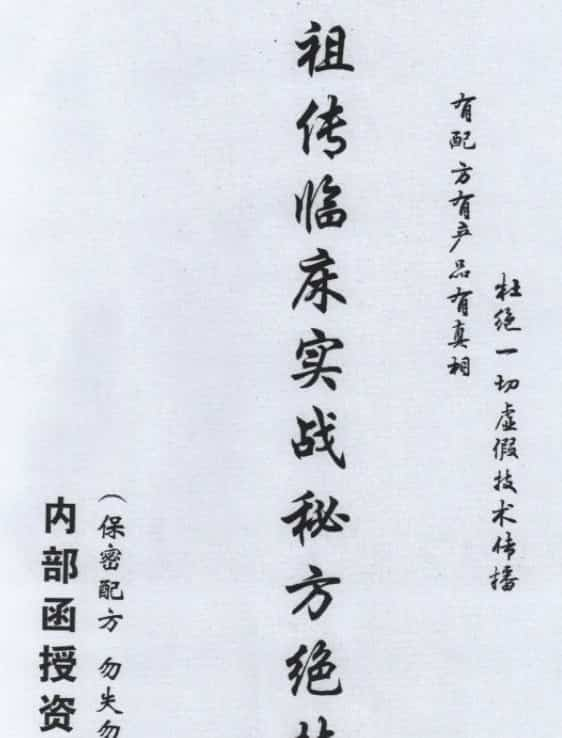 杜绝一切虚假技术传播
有配方有产品有真相
祖传临床实战秘方绝
(保密配方 勿失勿
内部函授资